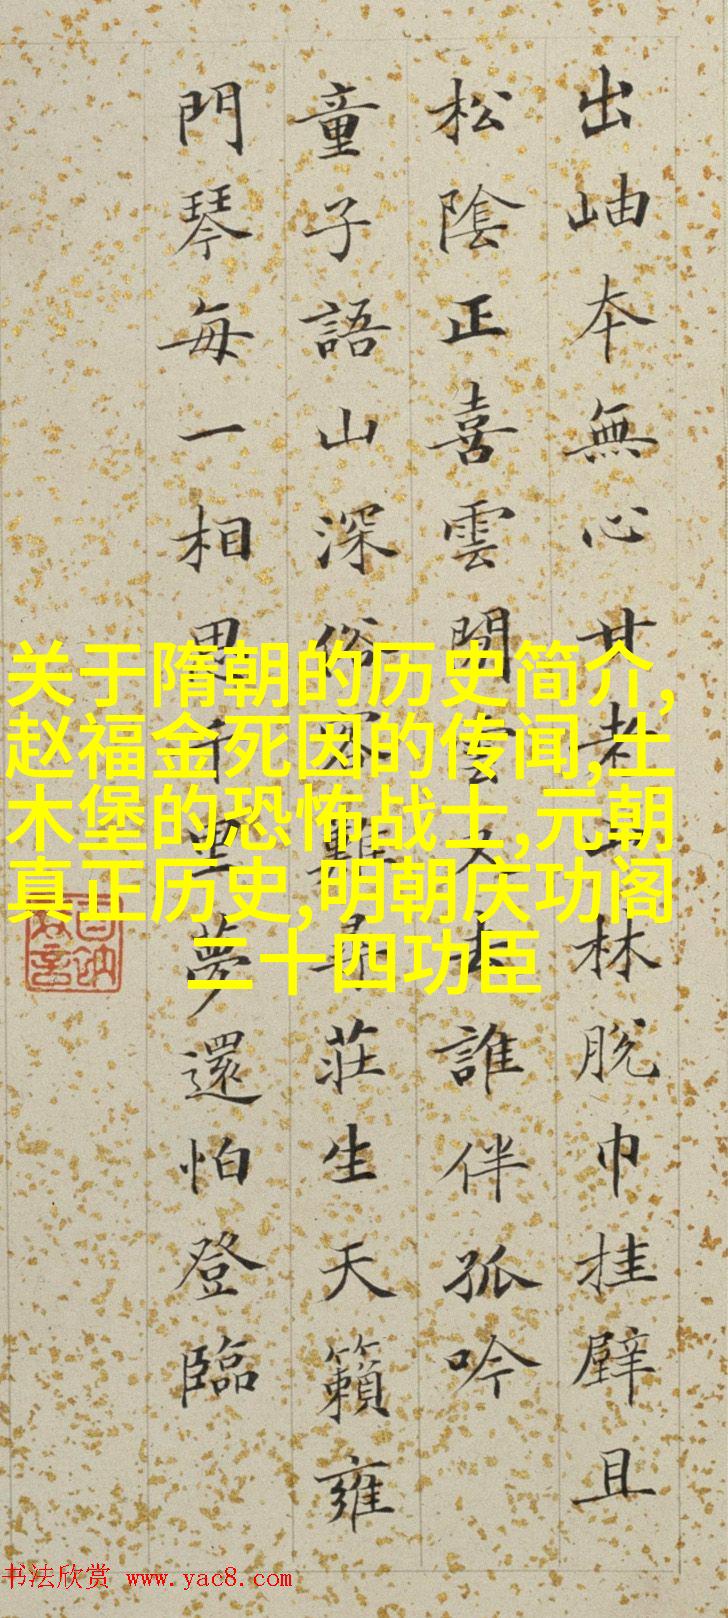 出岫本無心甘老林脫巾挂壁且
松陰正喜雲閒雲又去誰伴孤吟
童子語山深俗客難尋莊生天籟雍
門琴每一相思千里夢還怕登臨
关于隋朝的历史简介,
赵福金死因的传闻,土
木堡的恐怖战士,元朝
真正历史,明朝庆功阁
二十四功臣
书法欣赏 www.yac8.com